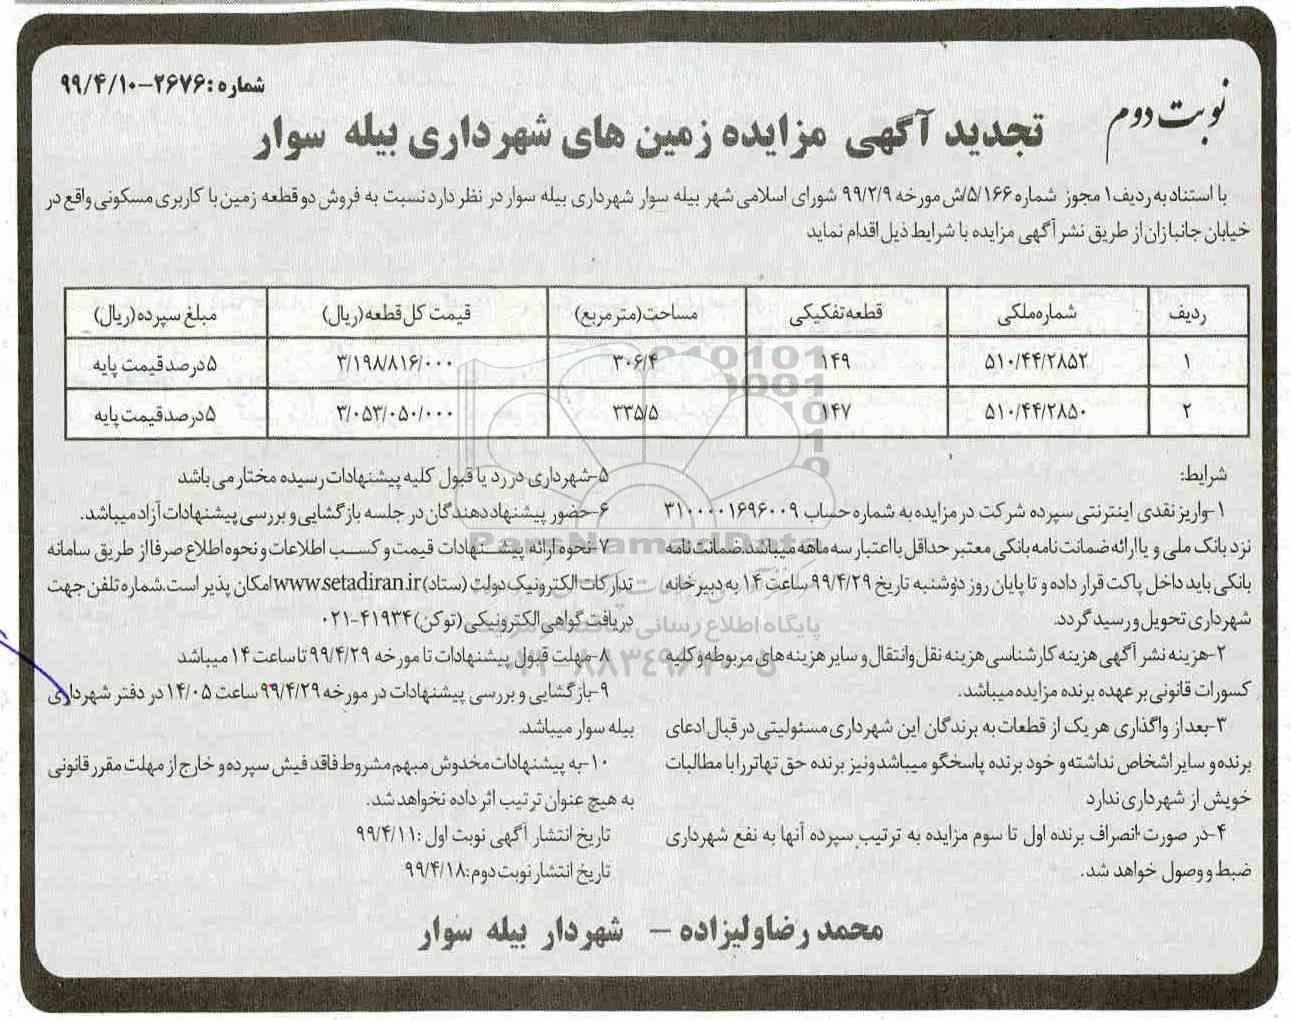 شماره: ۲۶۷۶-۹۹/۴/۱۰
نوبت دوم
تجدید آگهی مزایده زمین های شهرداری بیله سوار
با استناد به ردیف ۱ مجوز شماره ۵/۱۶۶/ش مورخه ۹۹/۲/۹ شورای اسلامی شهر بیله سوار شهرداری بیله سوار در نظر دارد نسبت به فروش دو قطعه زمین با کاربری مسکونی واقع در
خیابان جانبازان از طریق نشر آگهی مزایده با شرایط ذیل اقدام نماید
ردیف شماره ملکی قطعه تفکیکی مساحت (متر مربع) قیمت کل قطعه (ریال) مبلغ سپرده (ریال)
۱ ۵۱۰/۴۴/۲۸۵۲ ۱۴۹ ۳۰۶/۴ ۳/۱۹۸/۸۱۶/۰۰۰ ۵ درصد قیمت پایه
۲ ۵۱۰/۴۴/۲۸۵۰ ۱۴۷ ۳۳۵/۵ ۳/۰۵۳/۰۵۰/۰۰۰ ۵ درصد قیمت پایه
شرایط:
۱-واریز نقدی اینترنتی سپرده شرکت در مزایده به شماره حساب ۳۱۰۰۰۰۱۶۹۶۰۰۹
نزد بانک ملی و یا ارائه ضمانت نامه بانکی معتبر حداقل با اعتبار سه ماهه میباشد.ضمانت نامه
بانکی باید داخل پاکت قرار داده و تا پایان روز دوشنبه تاریخ ۹۹/۴/۲۹ ساعت ۱۴ به دبیرخانه
شهرداری تحویل و رسید گردد.
۲-هزینه نشر آگهی هزینه کارشناسی هزینه نقل وانتقال و سایر هزینه های مربوطه و کلیه
کسورات قانونی بر عهده برنده مزایده میباشد.
۳-بعد از واگذاری هر یک از قطعات به برندگان این شهرداری مسئولیتی در قبال ادعای
برنده و سایر اشخاص نداشته و خود برنده پاسخگو میباشد ونیز برنده حق تهاتر را با مطالبات
خویش از شهرداری ندارد
۴-در صورت انصراف برنده اول تا سوم مزایده به ترتیب سپرده آنها به نفع شهرداری
ضبط و وصول خواهد شد.
۵-شهرداری در رد یا قبول کلیه پیشنهادات رسیده مختار می باشد
۶-حضور پیشنهاد دهندگان در جلسه بازگشایی و بررسی پیشنهادات آزاد میباشد.
۷-نحوه ارائه پیشنهادات قیمت و کسب اطلاعات و نحوه اطلاع صرفا از طریق سامانه
تدارکات الکترونیک دولت (ستاد) www.setadiran.ir امکان پذیر است.شماره تلفن جهت
دریافت گواهی الکترونیکی (توکن) ۴۱۹۳۴-۰۲۱
۸-مهلت قبول پیشنهادات تا مورخه ۹۹/۴/۲۹ تا ساعت ۱۴ میباشد
۹-بازگشایی و بررسی پیشنهادات در مورخه ۹۹/۴/۲۹ ساعت ۱۴/۰۵ در دفتر شهرداری
بیله سوار میباشد.
۱۰-به پیشنهادات مخدوش مبهم مشروط فاقد فیش سپرده و خارج از مهلت مقرر قانونی
به هیچ عنوان ترتیب اثر داده نخواهد شد.
تاریخ انتشار آگهی نوبت اول: ۹۹/۴/۱۱
تاریخ انتشار نوبت دوم: ۹۹/۴/۱۸
محمد رضا ولیزاده - شهردار بیله سوار
ParsNamadData
پایگاه اطلاع رسانی مناقصه و مزایده